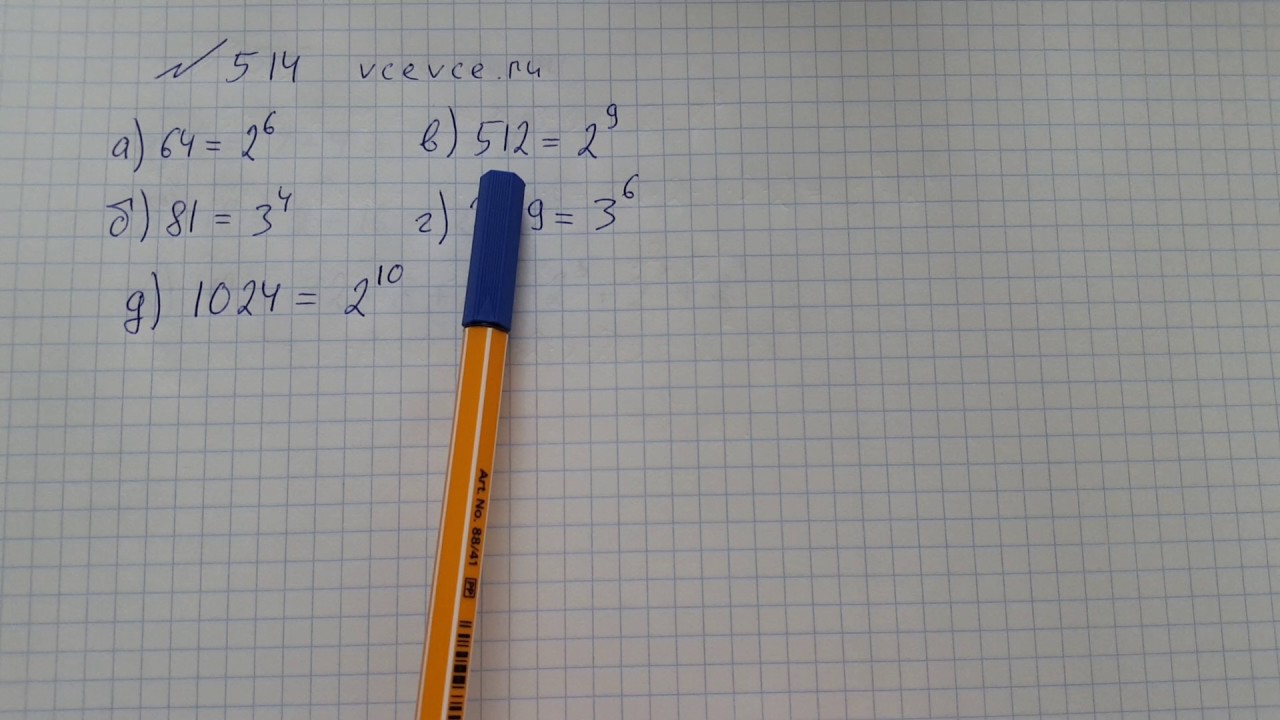 № 514 vcevce.ru
а) 64 = 2⁶ в) 512 = 2⁹
б) 81 = 3⁴ г) 9 = 3⁶
д) 1024 = 2¹⁰
Art. No. 88/41 PP